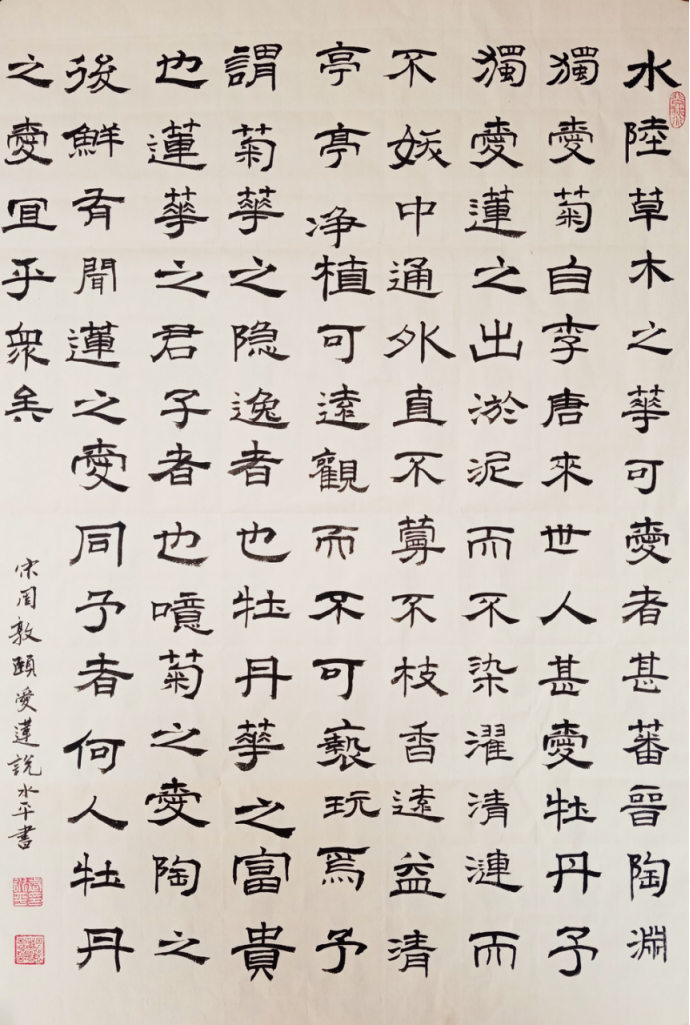 水陸草木之華可愛者甚蕃晉陶淵
獨愛菊自李唐來世人甚愛牡丹予
獨愛蓮之出淤泥而不染濯清漣而
不妖中通外直不蔓不枝香遠益清
亭亭净植可遠觀而不可褻玩焉予
謂菊華之隐逸者也牡丹華之富貴
也蓮華之君子者也噫菊之愛陶之
後鮮有聞蓮之愛同予者何人牡丹
之愛宜乎衆矣
宋周敦頤愛蓮說水平書